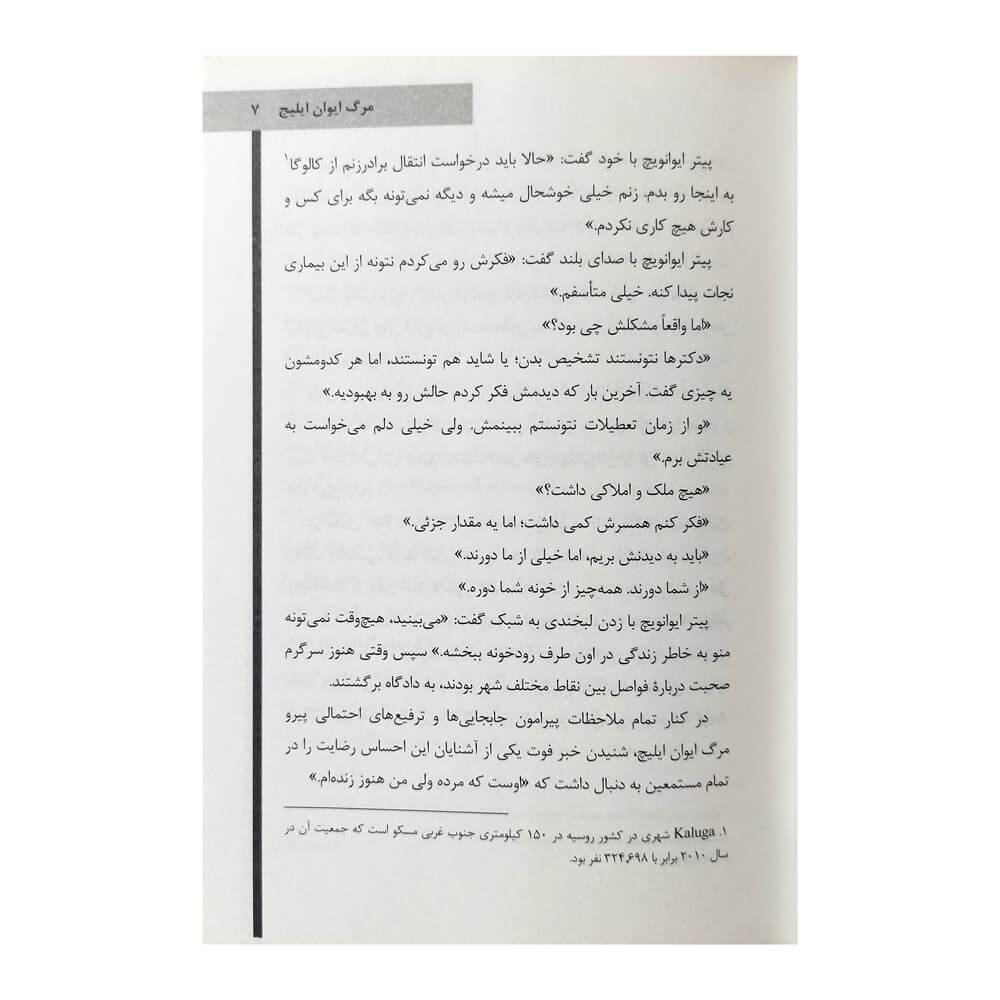 مرگ ایوان ایلیچ ۷
پیتر ایوانویچ با خود گفت: «حالا باید درخواست انتقال برادرزنم از کالوگا۱
به اینجا رو بدم. زنم خیلی خوشحال میشه و دیگه نمی‌تونه بگه برای کس و
کارش هیچ کاری نکردم.»
پیتر ایوانویچ با صدای بلند گفت: «فکرش رو می‌کردم نتونه از این بیماری
نجات پیدا کنه. خیلی متأسفم.»
«اما واقعاً مشکلش چی بود؟»
«دکترها نتونستند تشخیص بدن؛ یا شاید هم تونستند، اما هر کدومشون
یه چیزی گفت. آخرین بار که دیدمش فکر کردم حالش رو به بهبودیه.»
«و از زمان تعطیلات نتونستم ببینمش. ولی خیلی دلم می‌خواست به
عیادتش برم.»
«هیچ ملک و املاکی داشت؟»
«فکر کنم همسرش کمی داشت؛ اما یه مقدار جزئی.»
«باید به دیدنش بریم، اما خیلی از ما دورند.»
«از شما دورند. همه‌چیز از خونه شما دوره.»
پیتر ایوانویچ با زدن لبخندی به شبک گفت: «می‌بینید، هیچ‌وقت نمی‌تونه
منو به خاطر زندگی در اون طرف رودخونه ببخشه.» سپس وقتی هنوز سرگرم
صحبت دربارهٔ فواصل بین نقاط مختلف شهر بودند، به دادگاه برگشتند.
در کنار تمام ملاحظات پیرامون جابجایی‌ها و ترفیع‌های احتمالی پیرو
مرگ ایوان ایلیچ، شنیدن خبر فوت یکی از آشنایان این احساس رضایت را در
تمام مستمعین به دنبال داشت که «اوست که مرده ولی من هنوز زنده‌ام.»
۱. Kaluga شهری در کشور روسیه در ۱۵۰ کیلومتری جنوب غربی مسکو است که جمعیت آن در
سال ۲۰۱۰ برابر با ۳۲۴،۶۹۸ نفر بود.